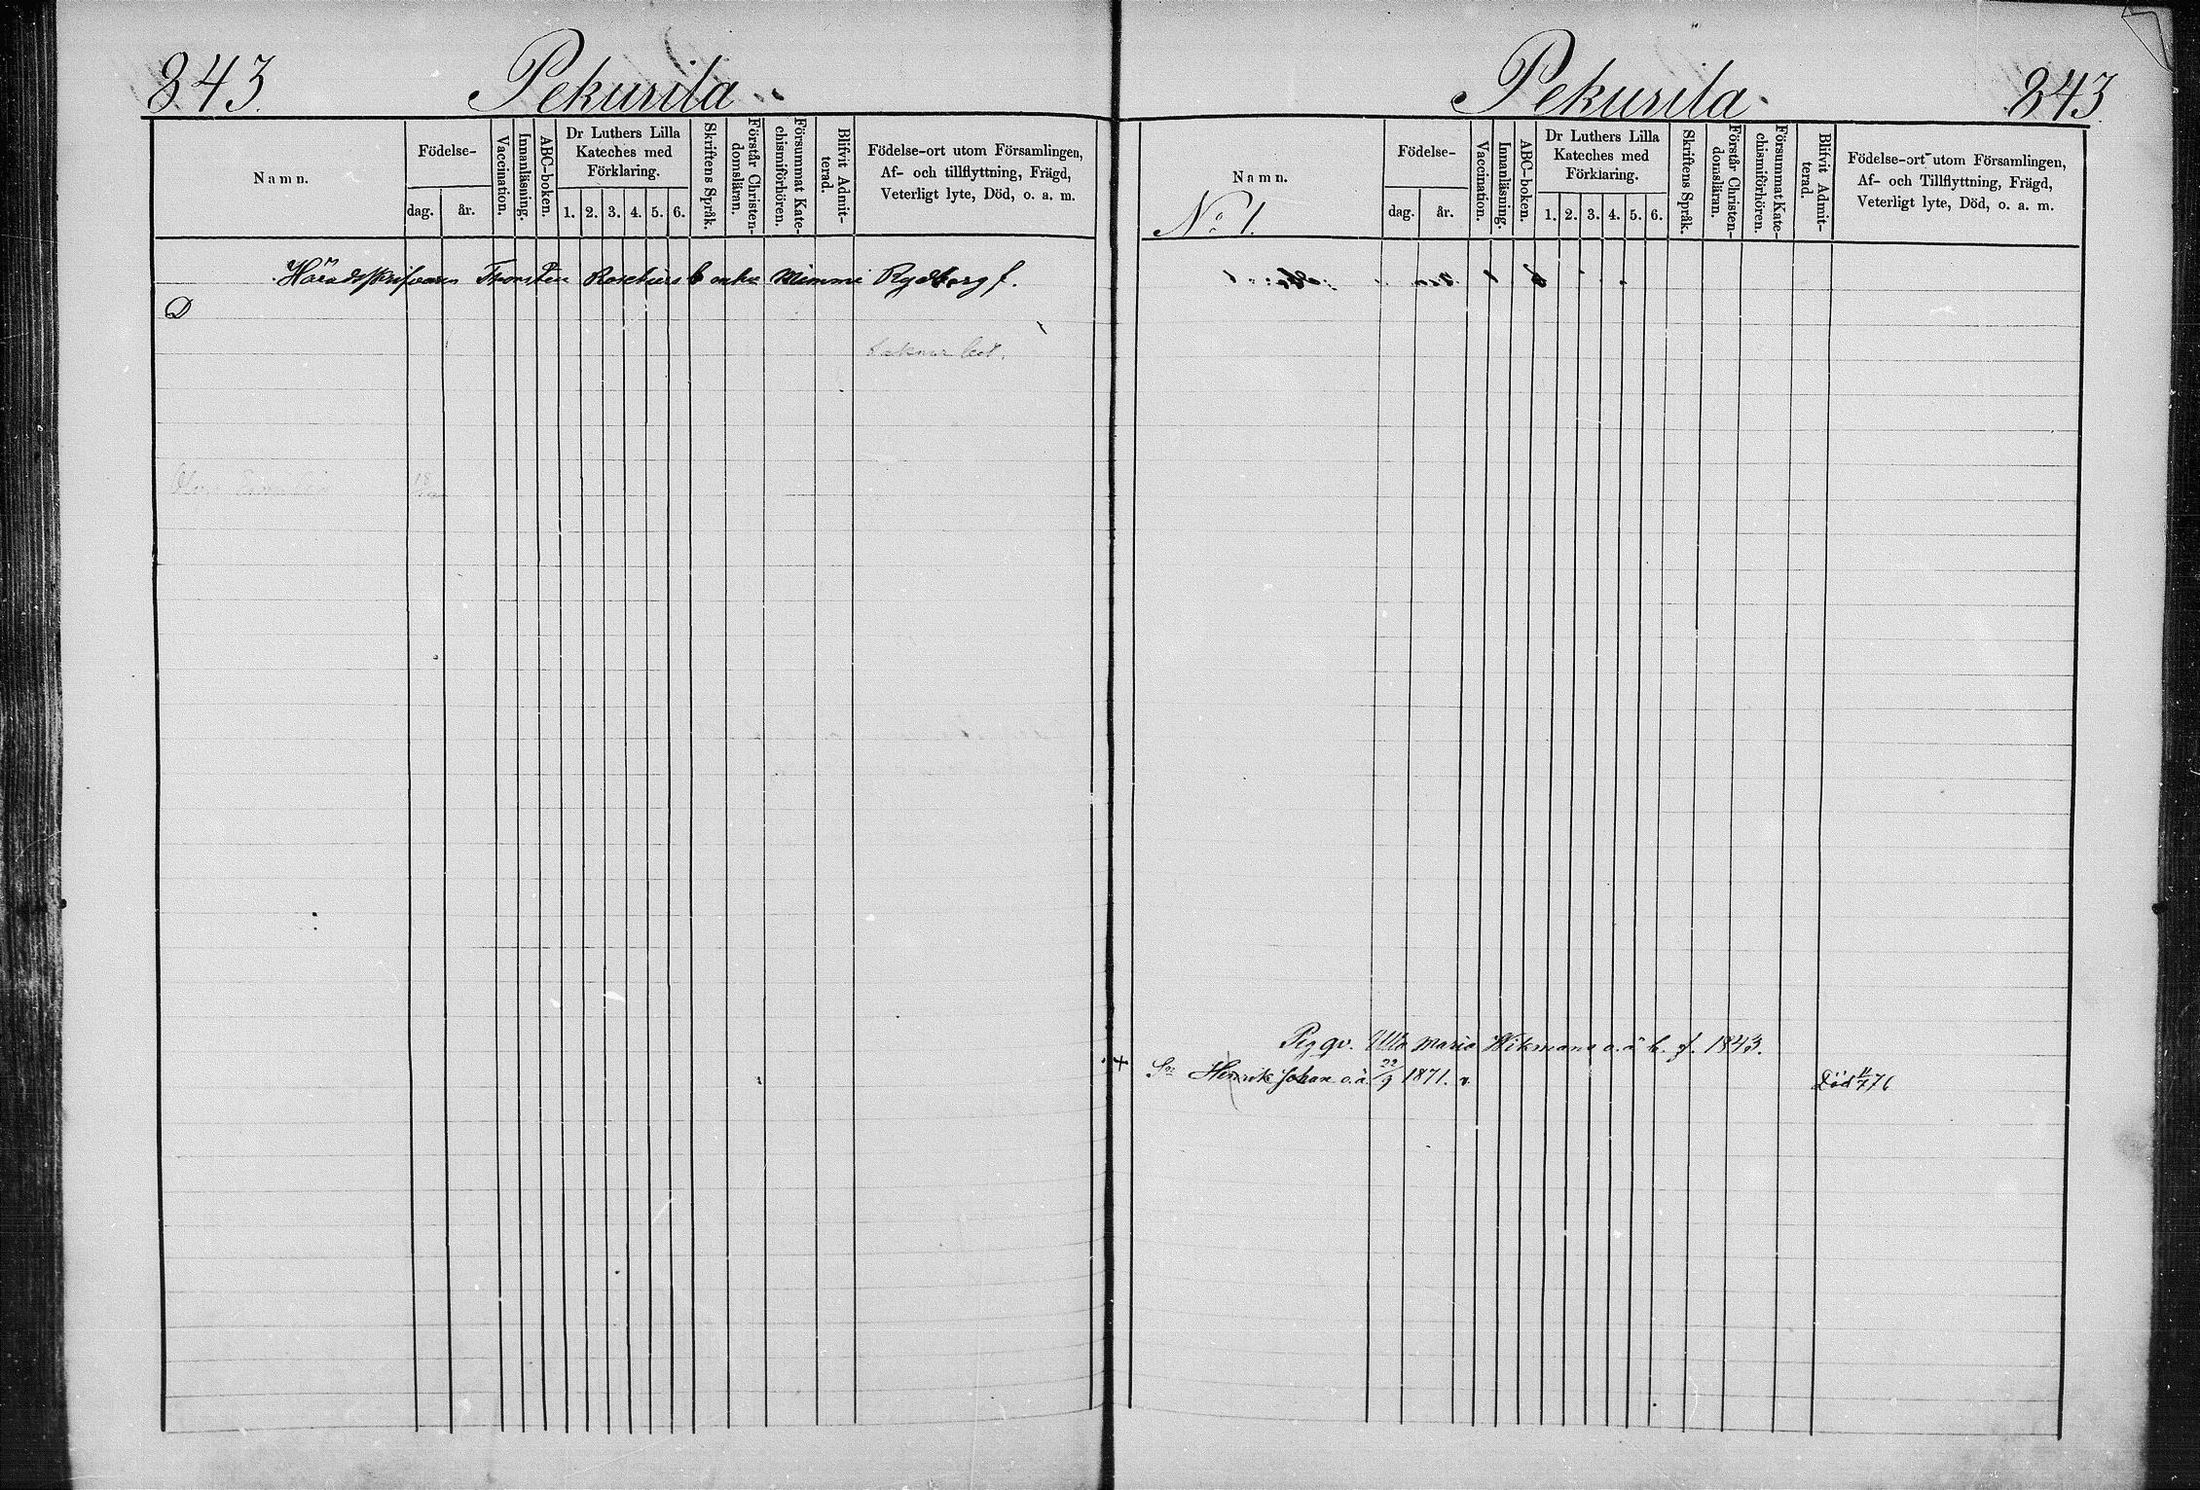 843.
Pekurila
Namn.
Födelse-
dag.
år.
Vaccination.
Innanläsning.
ABC-boken.
Dr Luthers Lilla
Kateches med
Förklaring.
1. 2. 3. 4. 5. 6.
Skriftens Språk.
Förstår Christen-
domsläran.
Försummat Kate-
chismiförhören.
Blifvit Admit-
terad.
Födelse-ort utom Församlingen,
Af- och tillflyttning, Frägd,
Veterligt lyte, Död, o. a. m.
Häradsskrifvaren Thorsten enka Mimmi Rydberg f.
D
Pekurila
843.
Namn.
No 1.
Födelse-
dag.
år.
Vaccination.
Innanläsning.
ABC-boken.
Dr Luthers Lilla
Kateches med
Förklaring.
1. 2. 3. 4. 5. 6.
Skriftens Språk.
Förstår Christen-
domsläran.
Försummat Kate-
chismiförhören.
Blifvit Admit-
terad.
Födelse-ort utom Församlingen,
Af- och Tillflyttning, Frägd,
Veterligt lyte, Död, o. a. m.
Pig qv. Ulla Maria Wikmans o. ä. b. f. 1843.
+ Son Henrik Johan o. ä. 22/9 1871. v Död 11/7 76